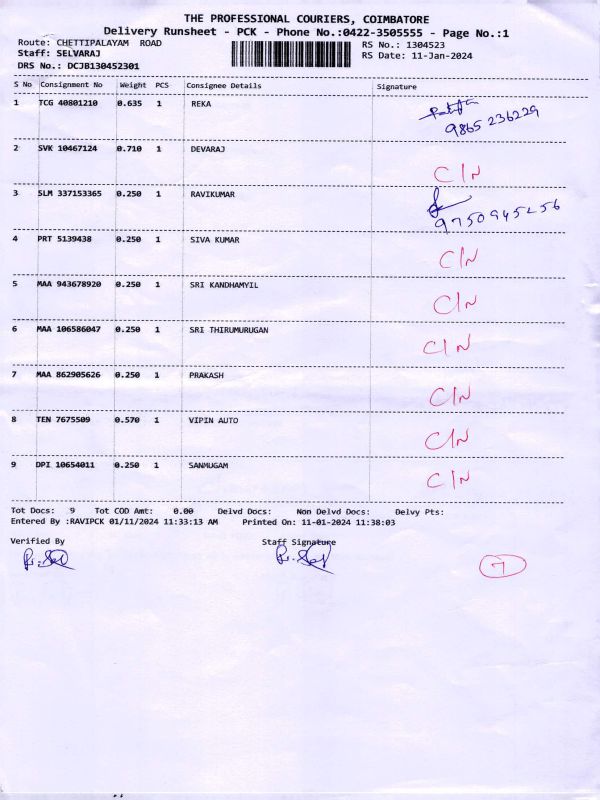 THE PROFESSIONAL COURIERS, COIMBATORE
Delivery Runsheet - PCK - Phone No.:0422-3505555 - Page No.:1
Route: CHETTIPALAYAM ROAD
RS No.: 1304523
Staff: SELVARAJ
RS Date: 11-Jan-2024
DRS No.: DCJB130452301
S No Consignment No Weight PCS Consignee Details Signature
1 TCG 40801210 0.635 1 REKA
9865 236229
2 SVK 10467124 0.710 1 DEVARAJ
C/N
3 SLM 337153365 0.250 1 RAVIKUMAR
9750945256
4 PRT 5139438 0.250 1 SIVA KUMAR
C/N
5 MAA 943678920 0.250 1 SRI KANDHAMYIL
C/N
6 MAA 106586047 0.250 1 SRI THIRUMURUGAN
C/N
7 MAA 862905626 0.250 1 PRAKASH
C/N
8 TEN 7675509 0.570 1 VIPIN AUTO
C/N
9 DPI 10654011 0.250 1 SANMUGAM
C/N
Tot Docs: 9 Tot COD Amt: 0.00 Delvd Docs: Non Delvd Docs: Delvy Pts:
Entered By :RAVIPCK 01/11/2024 11:33:13 AM Printed On: 11-01-2024 11:38:03
Verified By Staff Signature
7